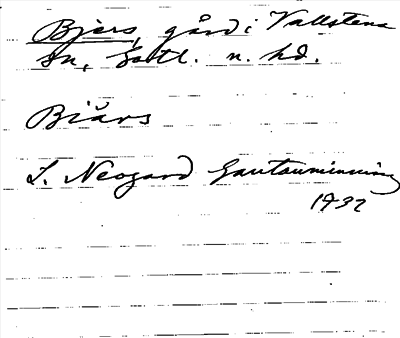 Bjers, gård i Vallstena
sn, Gotl. n. hd.
Biärs
L. Neogard Gautauminning
1932